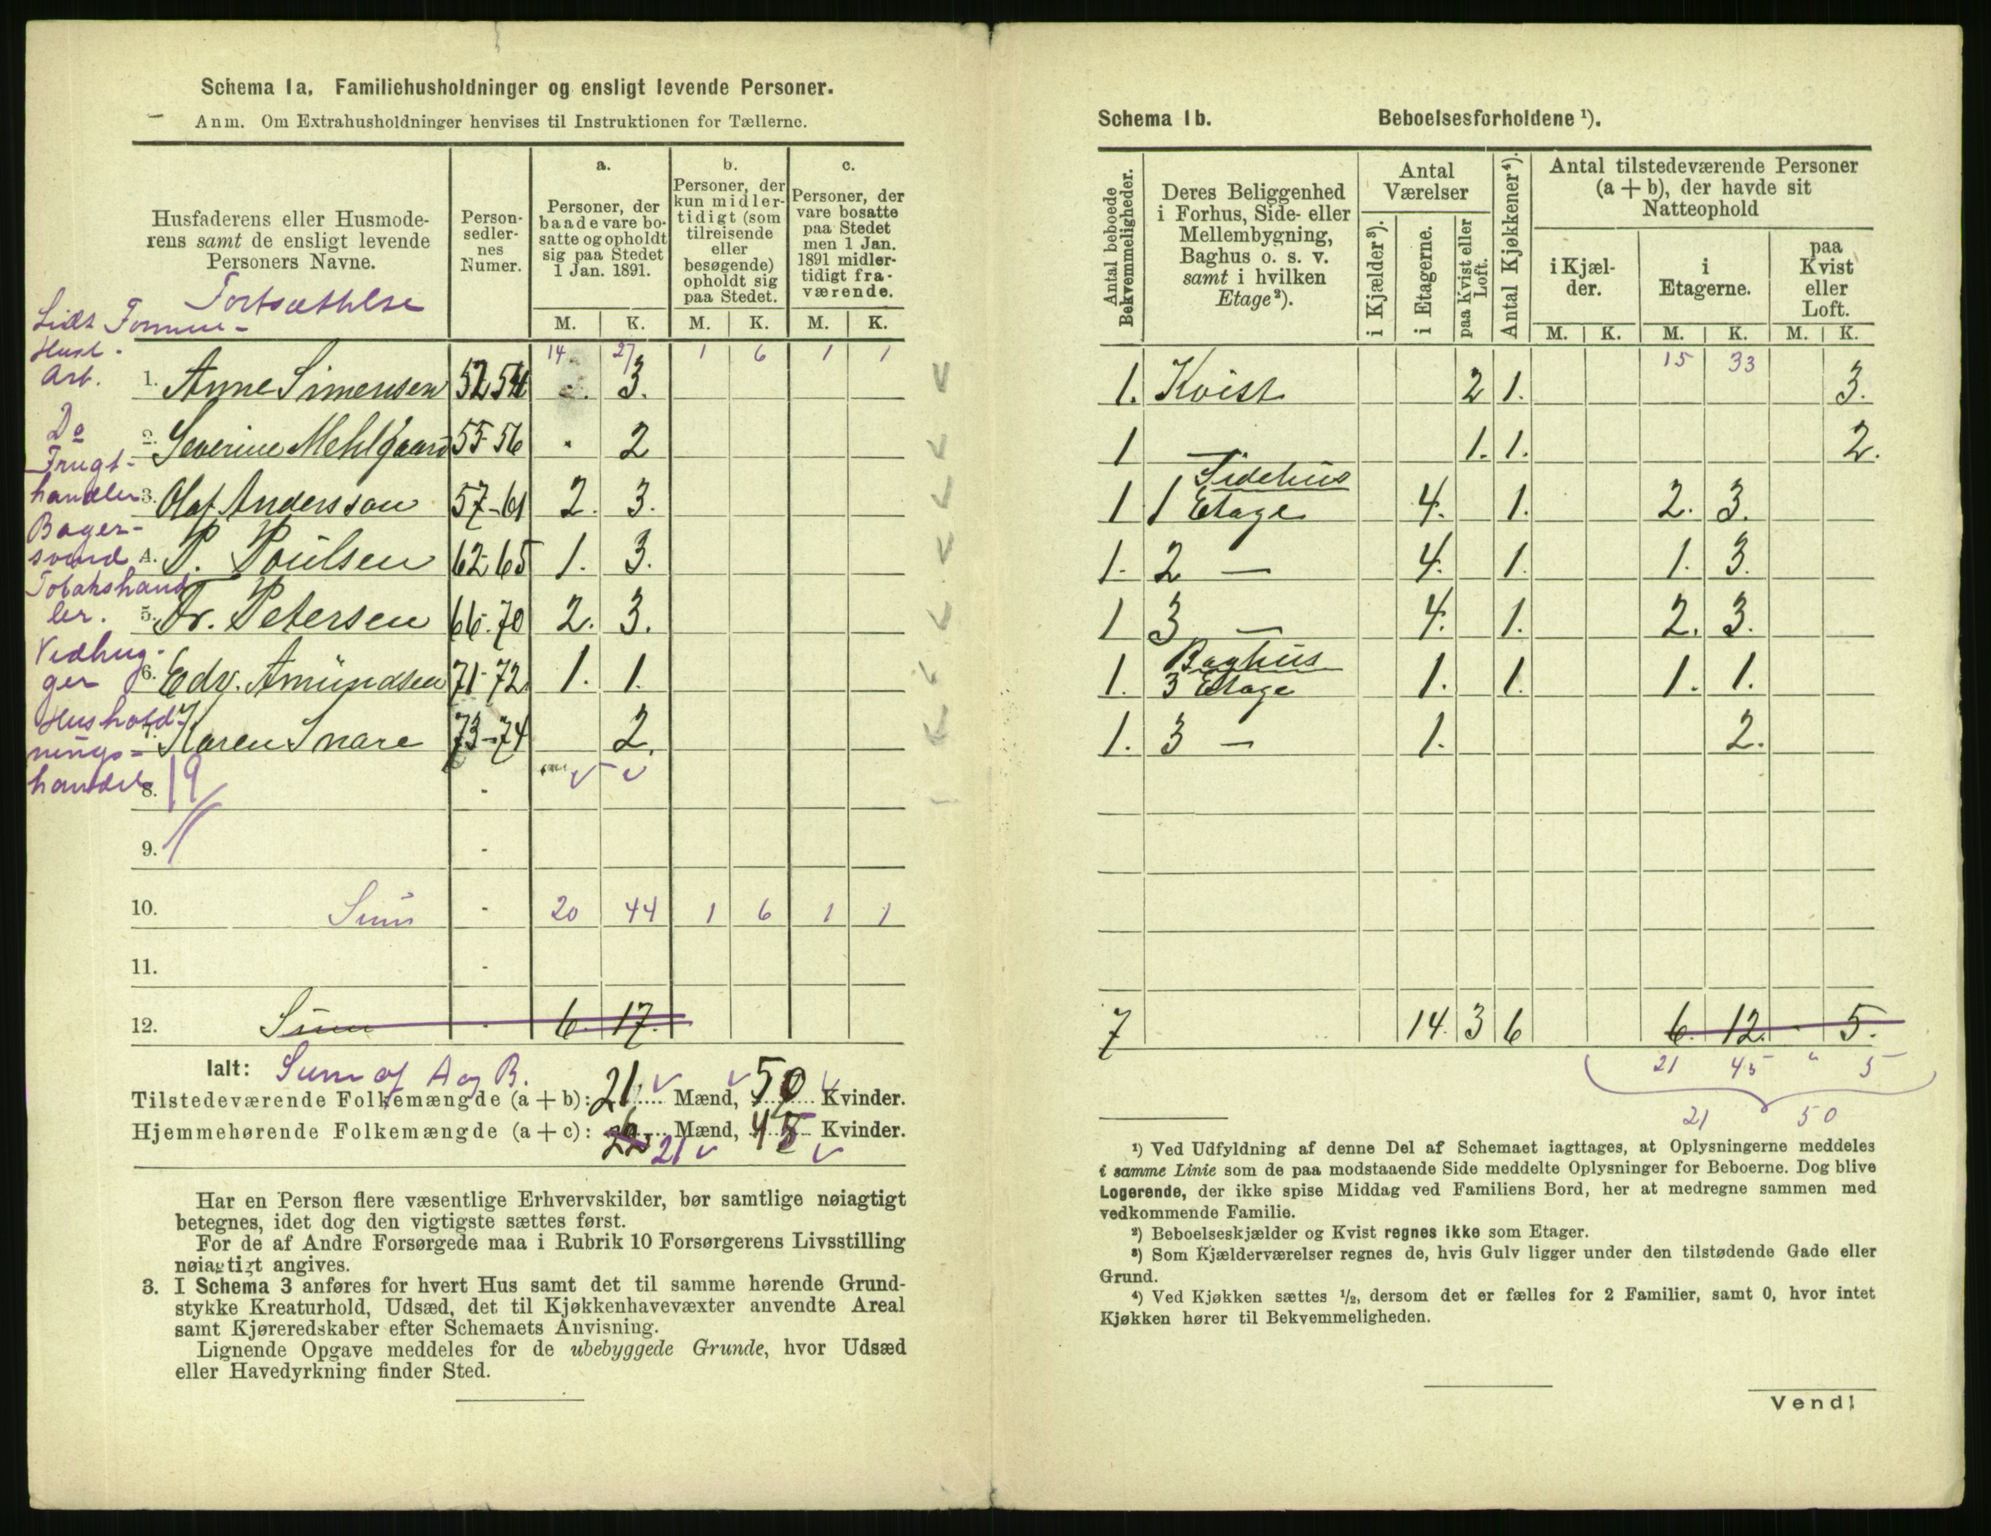 Schema 1a. Familiehusholdninger og ensligt levende Personer.
Anm. Om Extrahusholdninger henvises til Instruktionen for Tællerne.
Husfaderens eller Husmode-
rens samt de ensligt levende
Personers Navne.
Person-
sedler-
nes
Numer.
a.
Personer, der
baade vare bo-
satte og opholdt
sig paa Stedet
1 Jan. 1891.
b.
Personer, der
kun midler-
tidigt (som
tilreisende
eller
besøgende)
opholdt sig
paa Stedet.
c.
Personer, der
vare bosatte
paa Stedet
men 1 Jan.
1891 midler-
tidigt fra-
værende.
M. K. M. K. M. K.
Fortsættelse
14 27 1 6 1 1
Husl. Arb. 1. Anne Simensen 52 54 3.
Do 2. Severine Mehlgaard 55-56 2
Frugt-
handler 3. Olaf Andersson 57-61 2. 3.
Bager-
svend 4. P. Poulsen 62-65 1. 3.
Tobakshand
ler. 5. Fr. Petersen 66-70 2. 3.
Vedhug-
ger 6. Edv. Amundsen 71-72 1. 1.
Hushold-
nings-
handel 7. Karen Snare 73-74 2.
8. 19
9.
10. Sum 20 44 1 6 1 1
11.
12. Sum 6. 17.
Ialt: Sum af A og B.
Tilstedeværende Folkemængde (a + b): 21 Mænd, 50 Kvinder.
Hjemmehørende Folkemængde (a + c): 21 Mænd, 45 Kvinder.
Har en Person flere væsentlige Erhvervskilder, bør samtlige nøiagtigt
betegnes, idet dog den vigtigste sættes først.
For de af Andre Forsørgede maa i Rubrik 10 Forsørgerens Livsstilling
nøiagtigt angives.
3. I Schema 3 anføres for hvert Hus samt det til samme hørende Grund-
stykke Kreaturhold, Udsæd, det til Kjøkkenhavevæxter anvendte Areal
samt Kjøreredskaber efter Schemaets Anvisning.
Lignende Opgave meddeles for de ubebyggede Grunde, hvor Udsæd
eller Havedyrkning finder Sted.
Schema 1b. Beboelsesforholdene ¹).
Antal beboede
Bekvemmeligheder.
Deres Beliggenhed
i Forhus, Side- eller
Mellembygning,
Baghus o. s. v.
samt i hvilken
Etage²).
Antal
Værelser
i Kjælder³).
i Etagerne.
paa Kvist eller
Loft.
Antal Kjøkkener⁴).
Antal tilstedeværende Personer
(a + b), der havde sit
Natteophold
i Kjæl-
der.
i
Etagerne.
paa
Kvist
eller
Loft.
M. K. M. K. M. K.
15 33
1. Kvist 2 1. 3.
1 — 1. 1. 2.
Sidehus
1 1 Etage 4. 1. 2. 3.
1. 2 — 4. 1. 1. 3.
1 3 — 4. 1. 2. 3.
Baghus
1. 3 Etage 1. 1. 1. 1.
1. 3 — 1. 2.
7 14. 3 6 6. 12. 5.
21 45 " 5
21 50
¹) Ved Udfyldning af denne Del af Schemaet iagttages, at Oplysningerne meddeles
i samme Linie som de paa modstaaende Side meddelte Oplysninger for Beboerne. Dog blive
Logerende, der ikke spise Middag ved Familiens Bord, her at medregne sammen med
vedkommende Familie.
²) Beboelseskjælder og Kvist regnes ikke som Etager.
³) Som Kjælderværelser regnes de, hvis Gulv ligger under den tilstødende Gade eller
Grund.
⁴) Ved Kjøkken sættes ½, dersom det er fælles for 2 Familier, samt 0, hvor intet
Kjøkken hører til Bekvemmeligheden.
Vend!